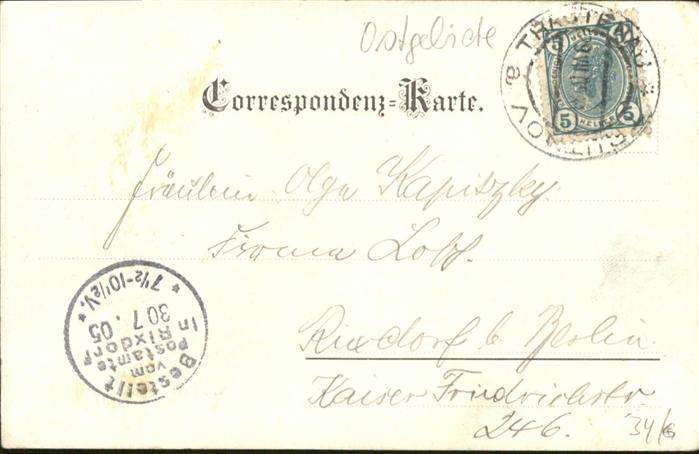 Ostgebiete
TRAUTENAU
TRUTNOV
5 5
HELLER
Correspondenz=Karte.
Fräulein Olga Kapiszky.
Firma
Rixdorf b. Berlin
Kaiser Friedrichstr.
246.
Bestellt
vom
Postamte
in Rixdorf
30 7. 05
* 7½-10½V. *